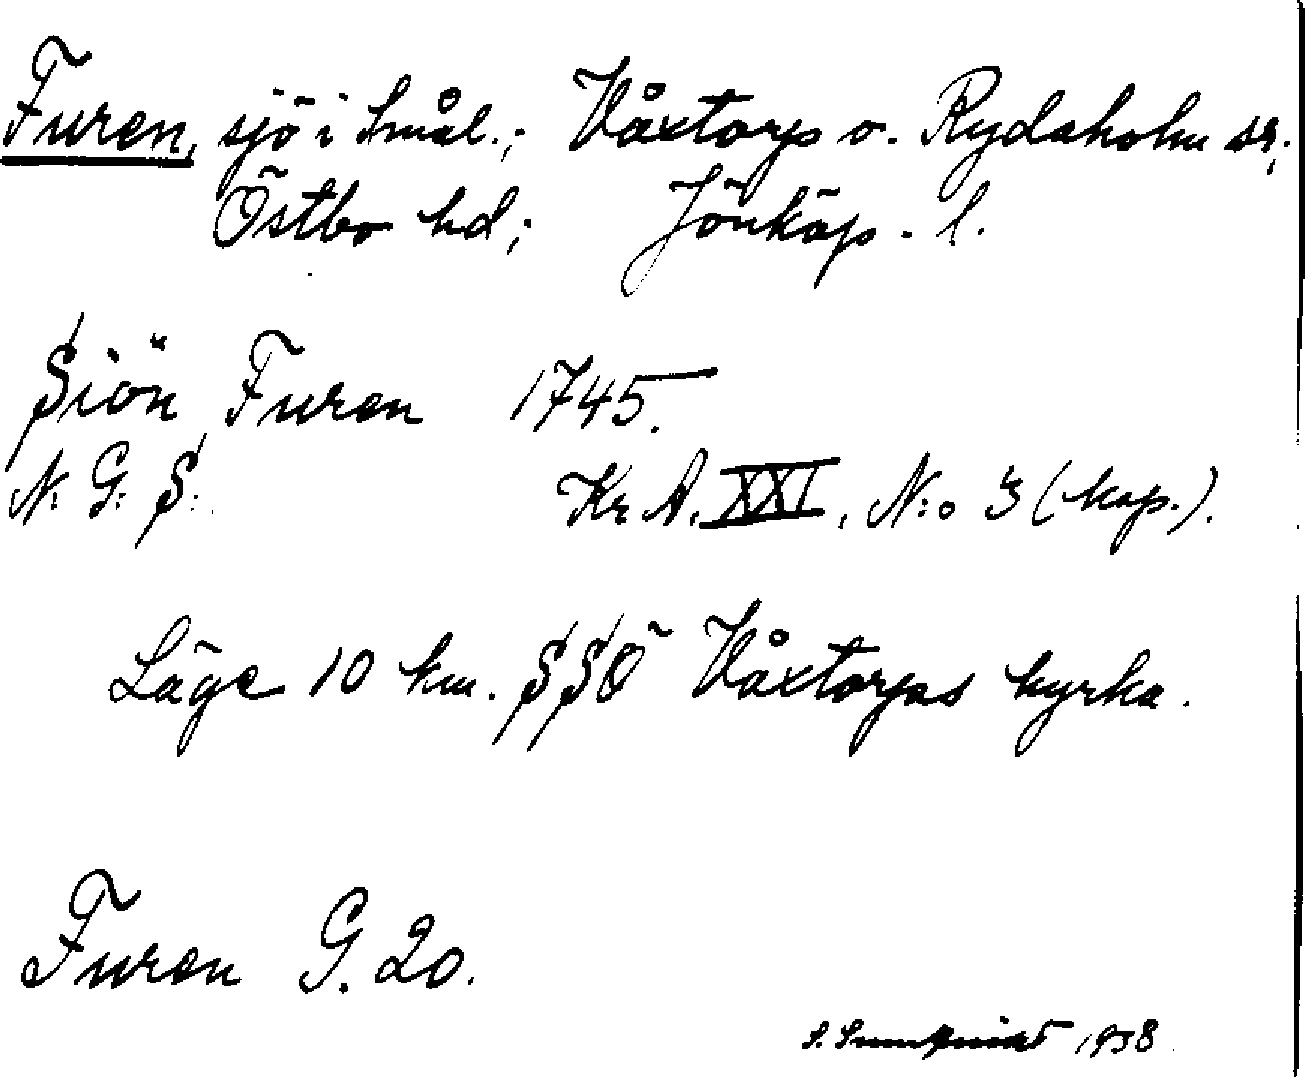 Furen, sjö i Smål.; Våxtorps o. Rydaholm sr;
Östbo hd; Jönköp. l.
Siön Furen 1745.
N: G: S: Kr A. XXI, N:o 3 (kop.).
Läge 10 km. SSÖ Våxtorps kyrka.
Furen G. 20.
1938